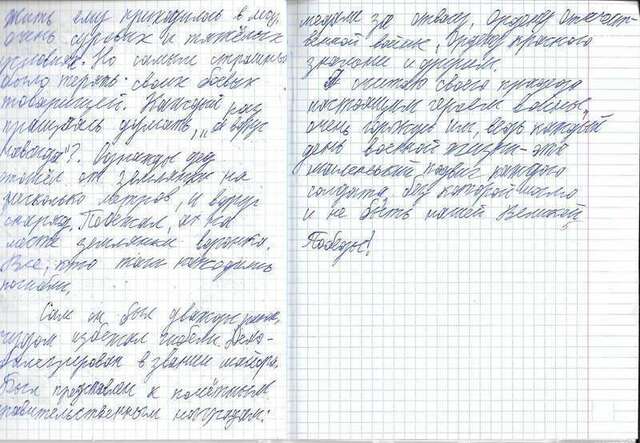 жить ему приходилось в
очень суровых и тяжёлых
условиях. Но самым страшным
было терять своих боевых
товарищей. Каждый раз
прощаясь думать, "а вдруг
навсегда"? Однажды дед
отошёл от землянки на
несколько метров, и вдруг
снаряд. Побежал, а на
месте землянки воронка.
Все, кто там находились
погибли.
Сам он был дважды ранен,
чудом избежал гибели. Демо-
билизирован в звании майора.
Был представлен к почётным
правительственным наградам:
медали за отвагу, Ордену Отечест-
венной войны, Ордену Красного
знамени и другим.
Я считаю своего прадеда
настоящим героем войны,
очень горжусь им, ведь каждый
день военной жизни - это
маленький подвиг каждого
солдата, без которой могло
и не быть нашей Великой
Победы!